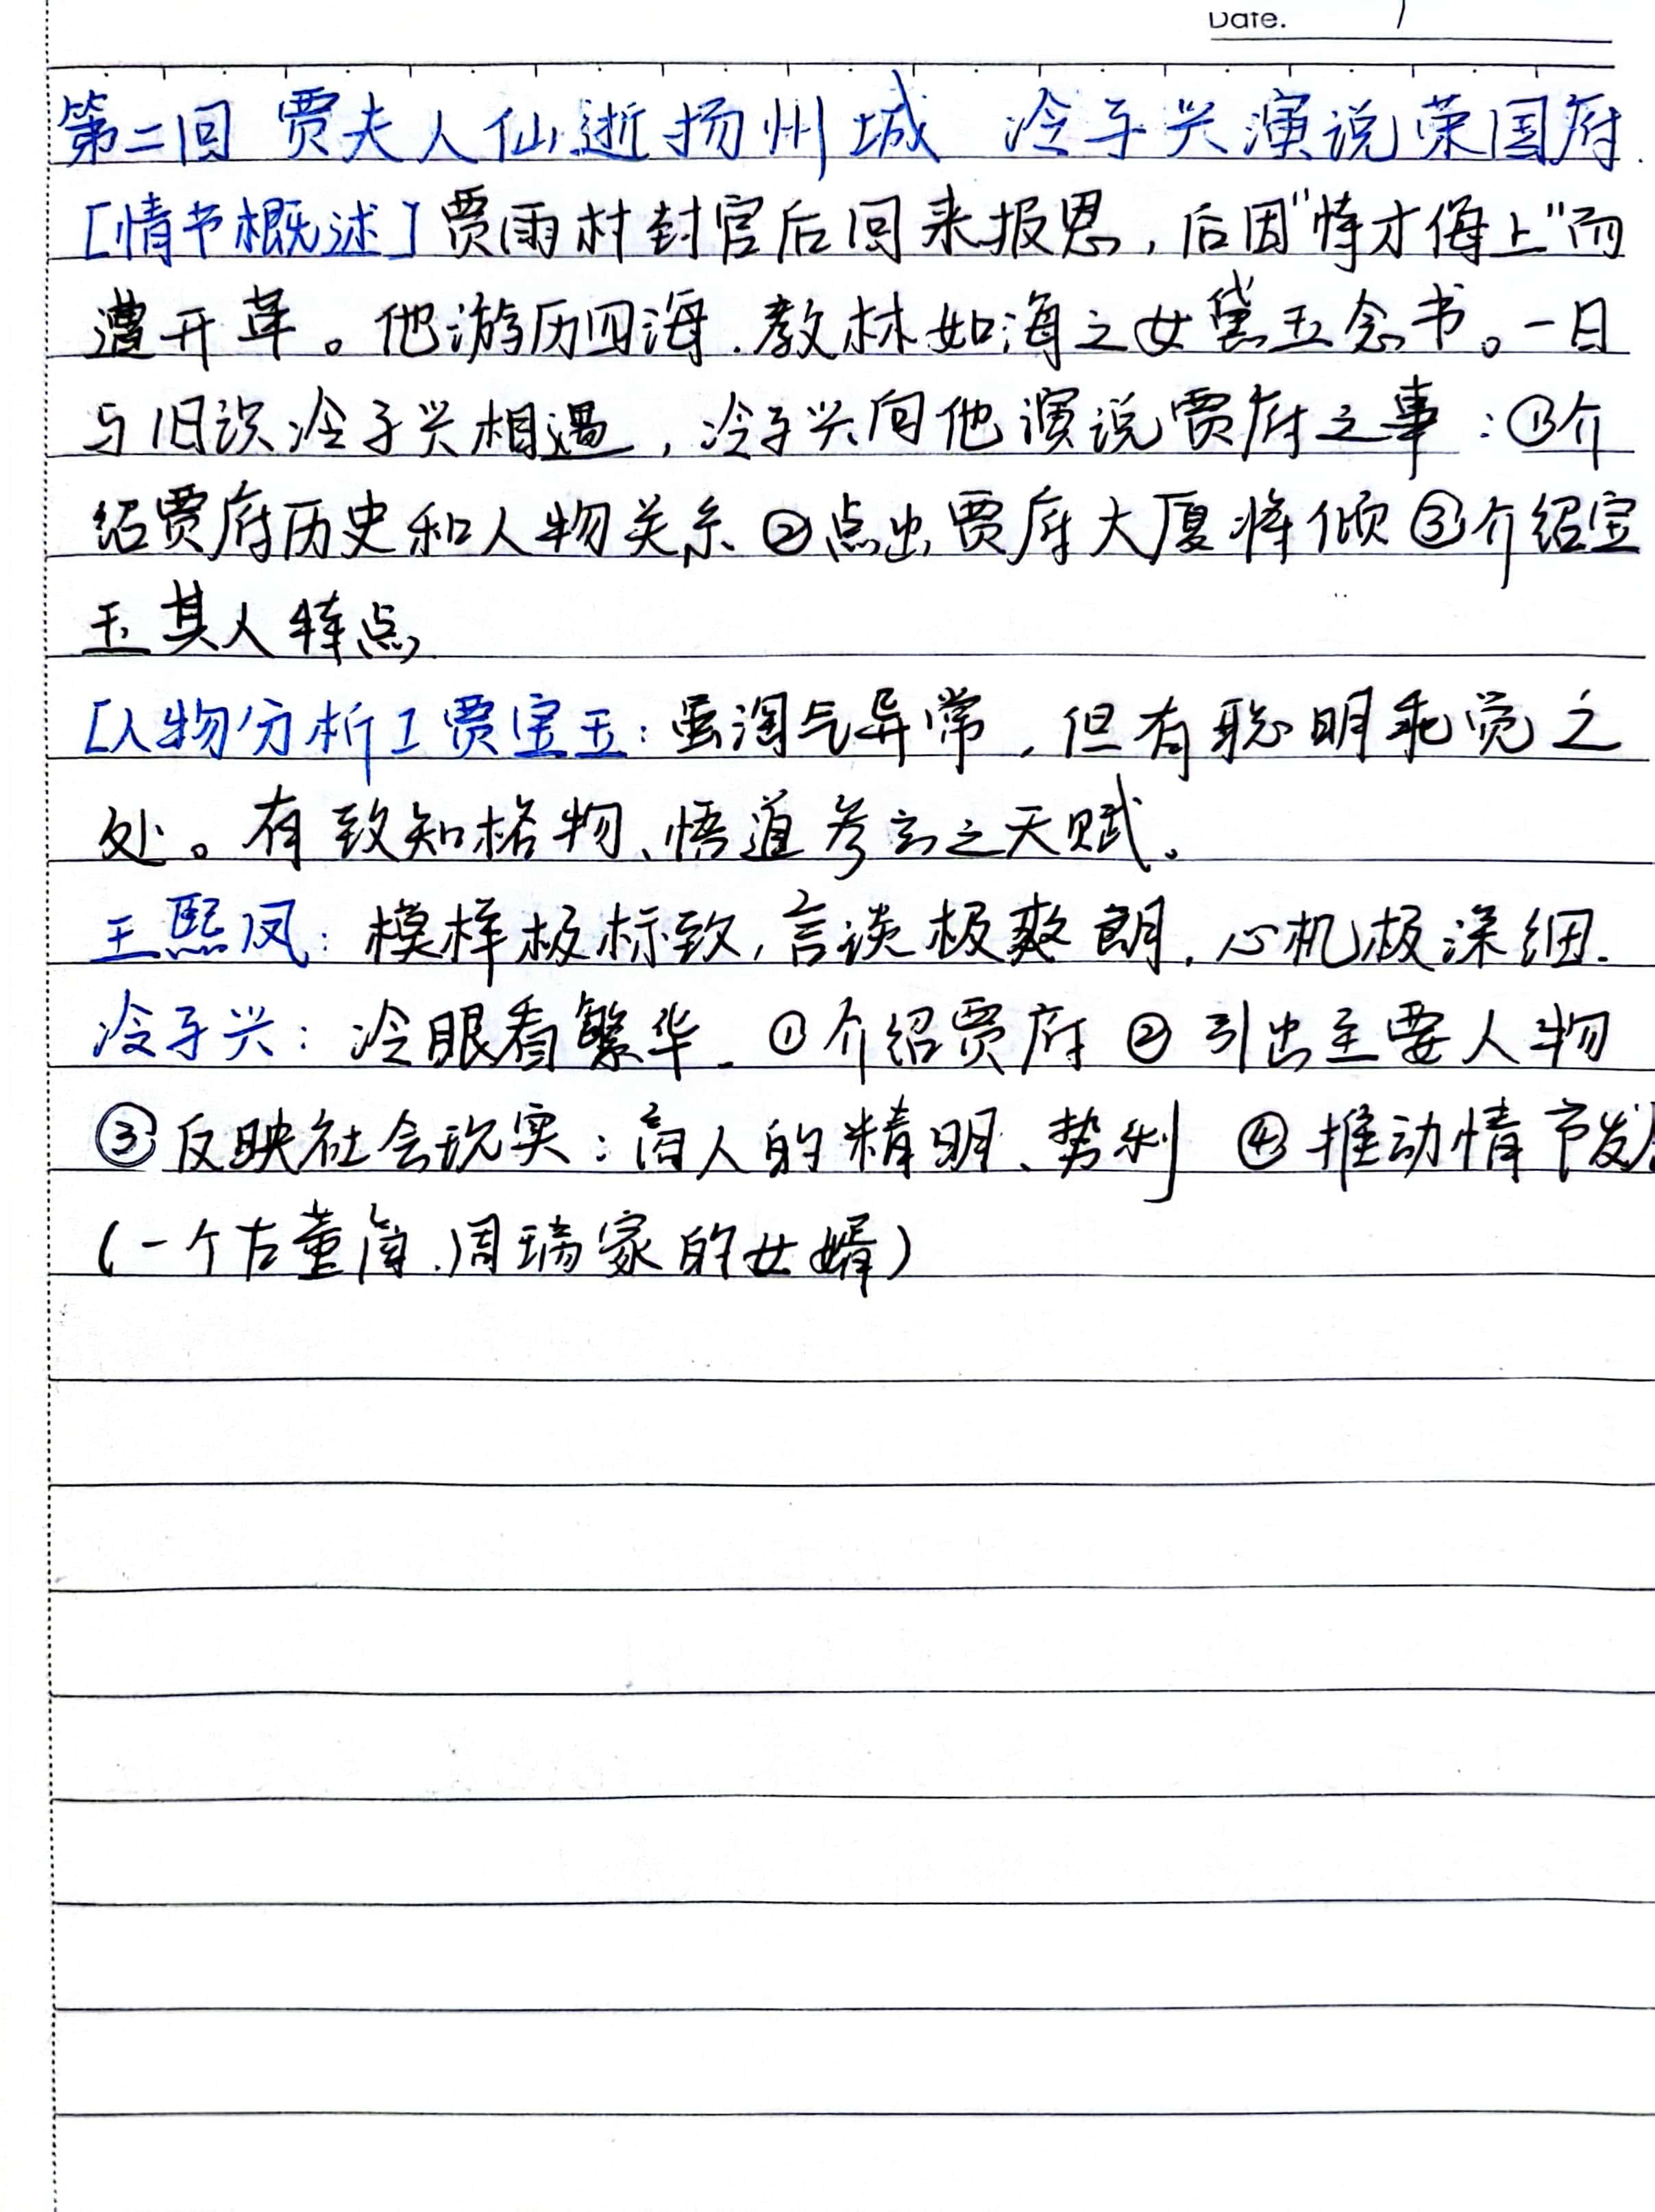 Date. /
第二回 贾夫人仙逝扬州城 冷子兴演说荣国府.
[情节概述]贾雨村封官后回来报恩,后因"恃才侮上"而
遭开革。他游历四海.教林如海之女黛玉念书。一日
与旧识冷子兴相遇,冷子兴向他演说贾府之事:①介
绍贾府历史和人物关系②点出贾府大厦将倾③介绍宝
玉其人特点
[人物分析]贾宝玉:虽淘气异常,但有聪明乖觉之
处。有致知格物、悟道参玄之天赋。
王熙凤:模样极标致,言谈极爽朗,心机极深细.
冷子兴:冷眼看繁华.①介绍贾府②引出主要人物
③反映社会现实:商人的精明、势利 ④推动情节发
(一个古董商.周瑞家的女婿)